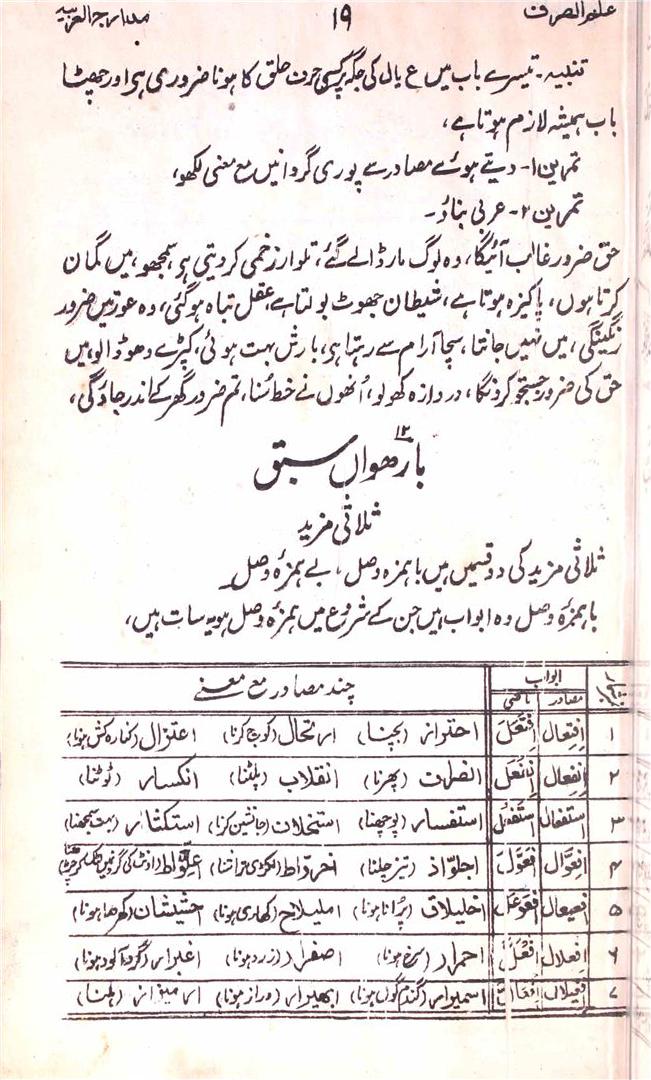 علم الصرف ۱۹ مدارج العربیہ
تنبیہ۔ تیسرے باب میں ع یا ل کی جگہ پر کسی حرف حلق کا ہونا ضروری ہی اور چھٹا
باب ہمیشہ لازم ہوتا ہے،
تمرین ۱۔ دیتے ہوئے مصادر سے پوری گردانیں مع معنی لکھو،
تمرین ۲۔ عربی بناؤ۔
حق ضرور غالب آئیگا، وہ لوگ مار ڈالے گئے، تلوار زخمی کر دیتی ہی، سمجھو، میں گمان
کرتا ہوں، پاکیزہ ہوتا ہے، شیطان جھوٹ بولتا ہے، عقل تباہ ہو گئی، وہ عورتیں ضرور
رنگینگی، میں نہیں جانتا، سچا آرام سے رہتا ہی، بارش بہت ہوئی، کپڑے دھو ڈالو، میں
حق کی ضرور جستجو کرونگا، دروازہ کھولو، اُنھوں نے خط سُنا، تم ضرور گھر کے اندر جاؤگی،
۱۲
بارھواں سبق
ثلاثی مزید
ثلاثی مزید کی دو قسمیں ہیں با ہمزہ وصل، بے ہمزۂ وصل۔
با ہمزۂ وصل وہ ابواب ہیں جن کے شروع میں ہمزۂ وصل ہو یہ سات ہیں،
ابواب چند مصادر مع معنے
مصادر ماضی
۱ اِفتِعال اِفْتَعَلَ احتراز (بچنا) ارتحال (کوچ کرنا) اعتزال (کنارہ کش ہونا)
۲ اِنفِعال اِنْفَعَلَ انصراف (پھرنا) انقلاب (پلٹنا) انکسار (ٹوٹنا)
۳ استفعال استفعل استفسار (پوچھنا) استخلاف (جانشین کرنا) استکثار (بہت سمجھنا)
۴ افعوّال افعوّل اجلوّاذ (تیز چلنا) اخروّاط (لکڑی تراشنا) اعلوّاط
۵ افعیعال افعوعل اخلیلاق (پُرانا ہونا) املیلاح (کھاری ہونا) اخشیشان (کھردرا ہونا)
۶ افعلال افعلّ احمرار (سرخ ہونا) اصفرار (زرد ہونا) اغبرار (گرد آلود ہونا)
۷ افعیلال افعالّ اسمیرار (گندم گوں ہونا) ابھیرار (دراز ہونا)